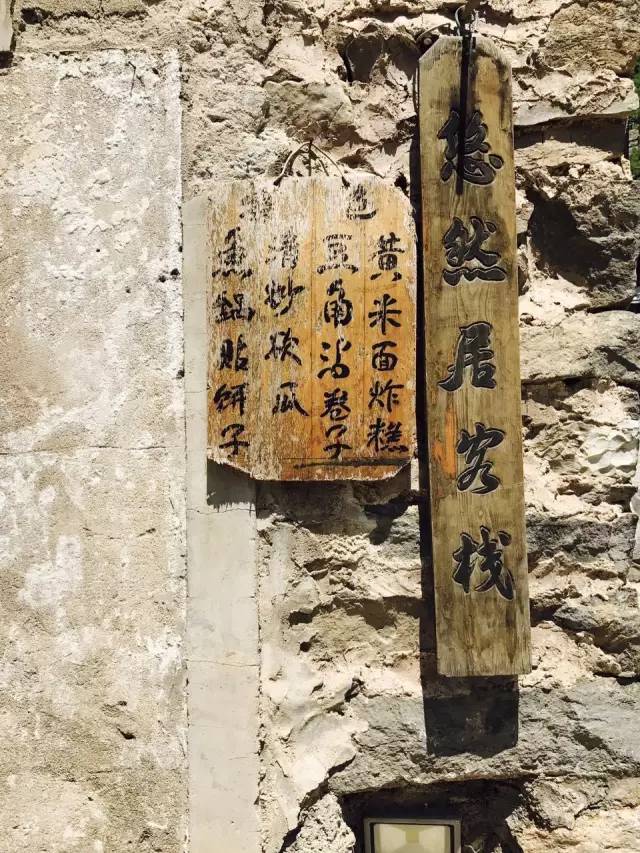 悠然居客栈
黄米面炸糕
豆角沾卷子
清炒砍瓜
鱼锅贴饼子